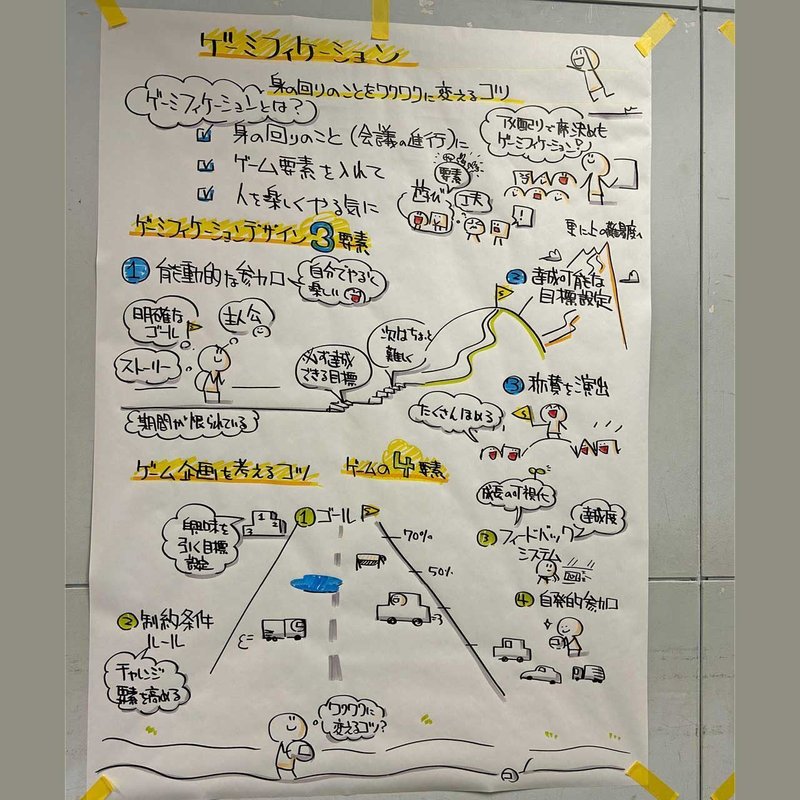 ゲーミフィケーション
身の回りのことをワクワクに変えるコツ
ゲーミフィケーションとは?
身の回りのこと(会議の進行)に
ゲーム要素を入れて
人を楽しくやる気に
で席決めも
ゲーミフィケーション!
要素
遊び
工夫
!
ゲーミフィケーションデザイン3要素
1 能動的な参加
自分でやるって
楽しい
明確な
ゴール
主人公
ストーリー
期間が限られている
必ず達成
できる目標
次はちょっと
難しく
更に上の難易度へ
2 達成可能な
目標設定
3 称賛を演出
たくさんほめる
ゲーム企画を考えるコツ
ゲームの4要素
1 ゴール
興味を
引く目標
設定
1
2
3
70%
50%
2 制約条件
ルール
チャレンジ
要素を高める
成長の可視化
達成度
3 フィードバック
システム
4 自発的参加
ワクワクに
変えるコツ?